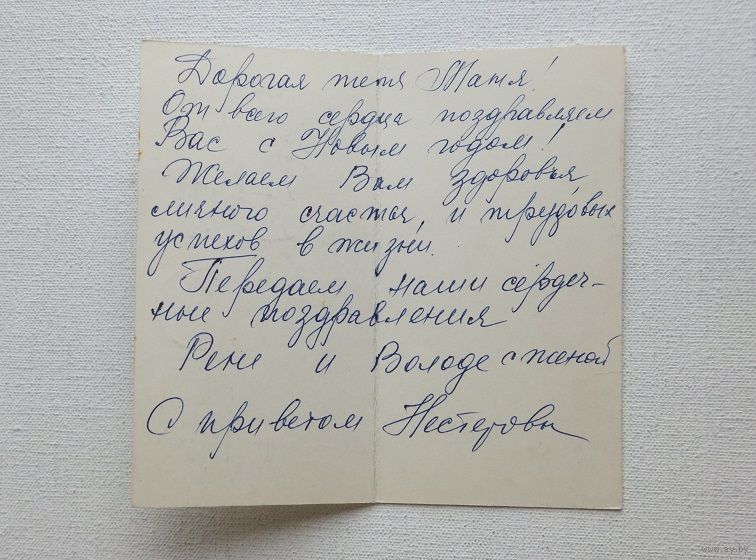 Дорогая тетя Таня!
От всего сердца поздравляем
Вас с Новым годом!
Желаем Вам здоровья
личного счастья, и трудовых
успехов в жизни.
Передаем наши сердеч-
ные поздравления
Рене и Володе с женой
С приветом Нестеровы
www.ay.by